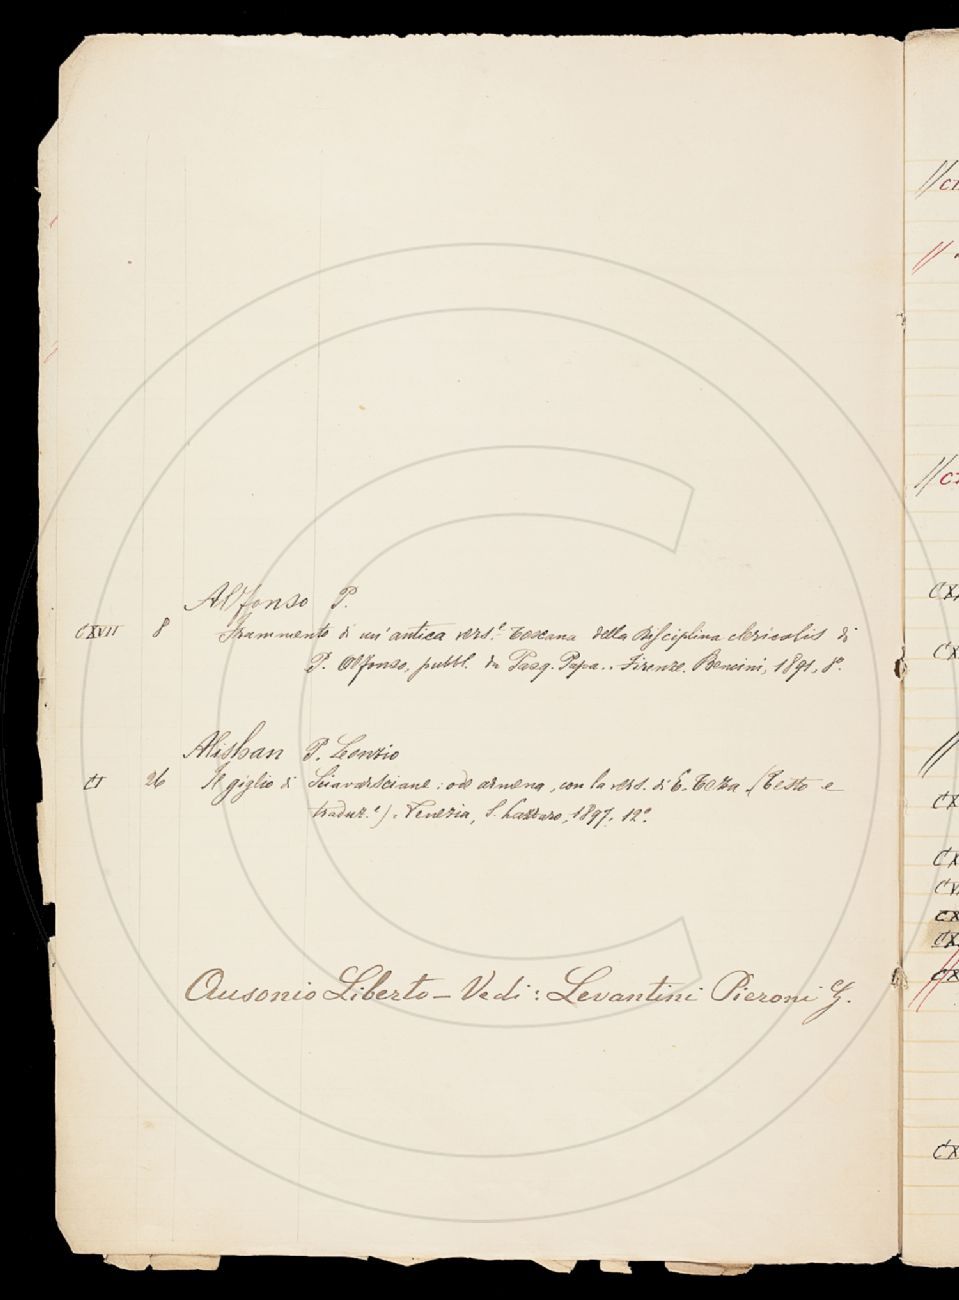 Alfonso P.
CXVII 8 Frammento di un' antica vers.e toscana della Disciplina clericalis di
P. Alfonso, pubbl. da Pasq. Papa.. Firenze. Bencini, 1891, 8°.
Alishan P. Leonzio
CI 26 Il giglio di Sciavarsciane: ode armena, con la vers. di E. Teza (Testo e
traduz.e). Venezia, S. Lazzaro, 1897. 12°.
Ausonio Liberto – Vedi: Levantini Pieroni G.